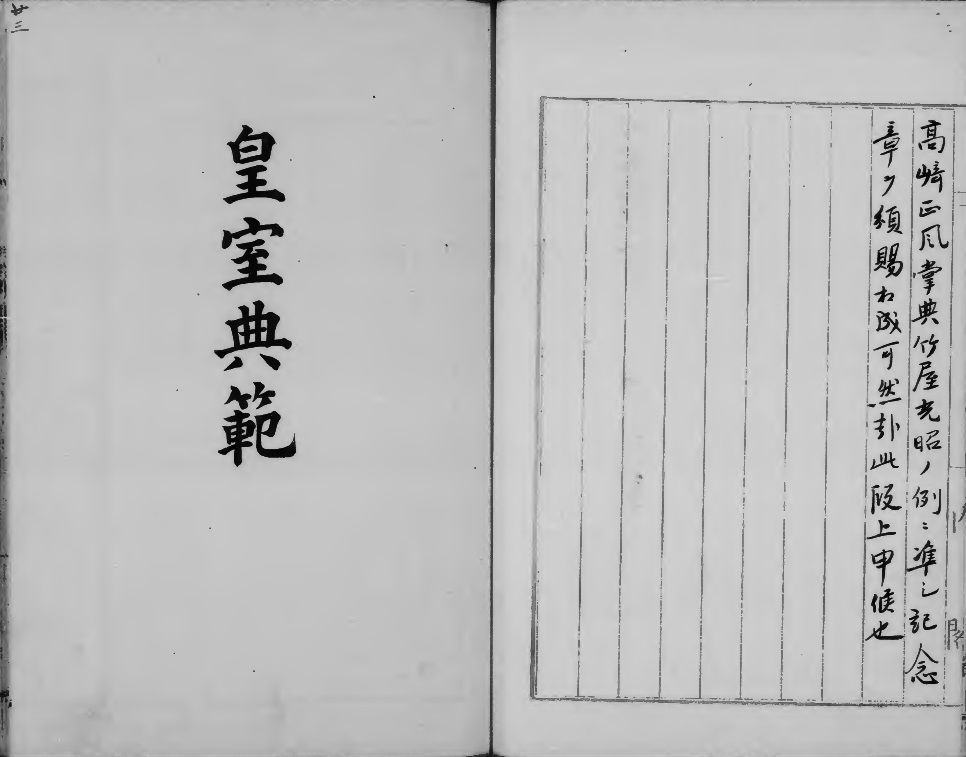 高崎正風掌典竹屋光昭ノ例ニ準シ記念
章ヲ頒賜相成可然卦此段上申候也
皇室典範
廿三